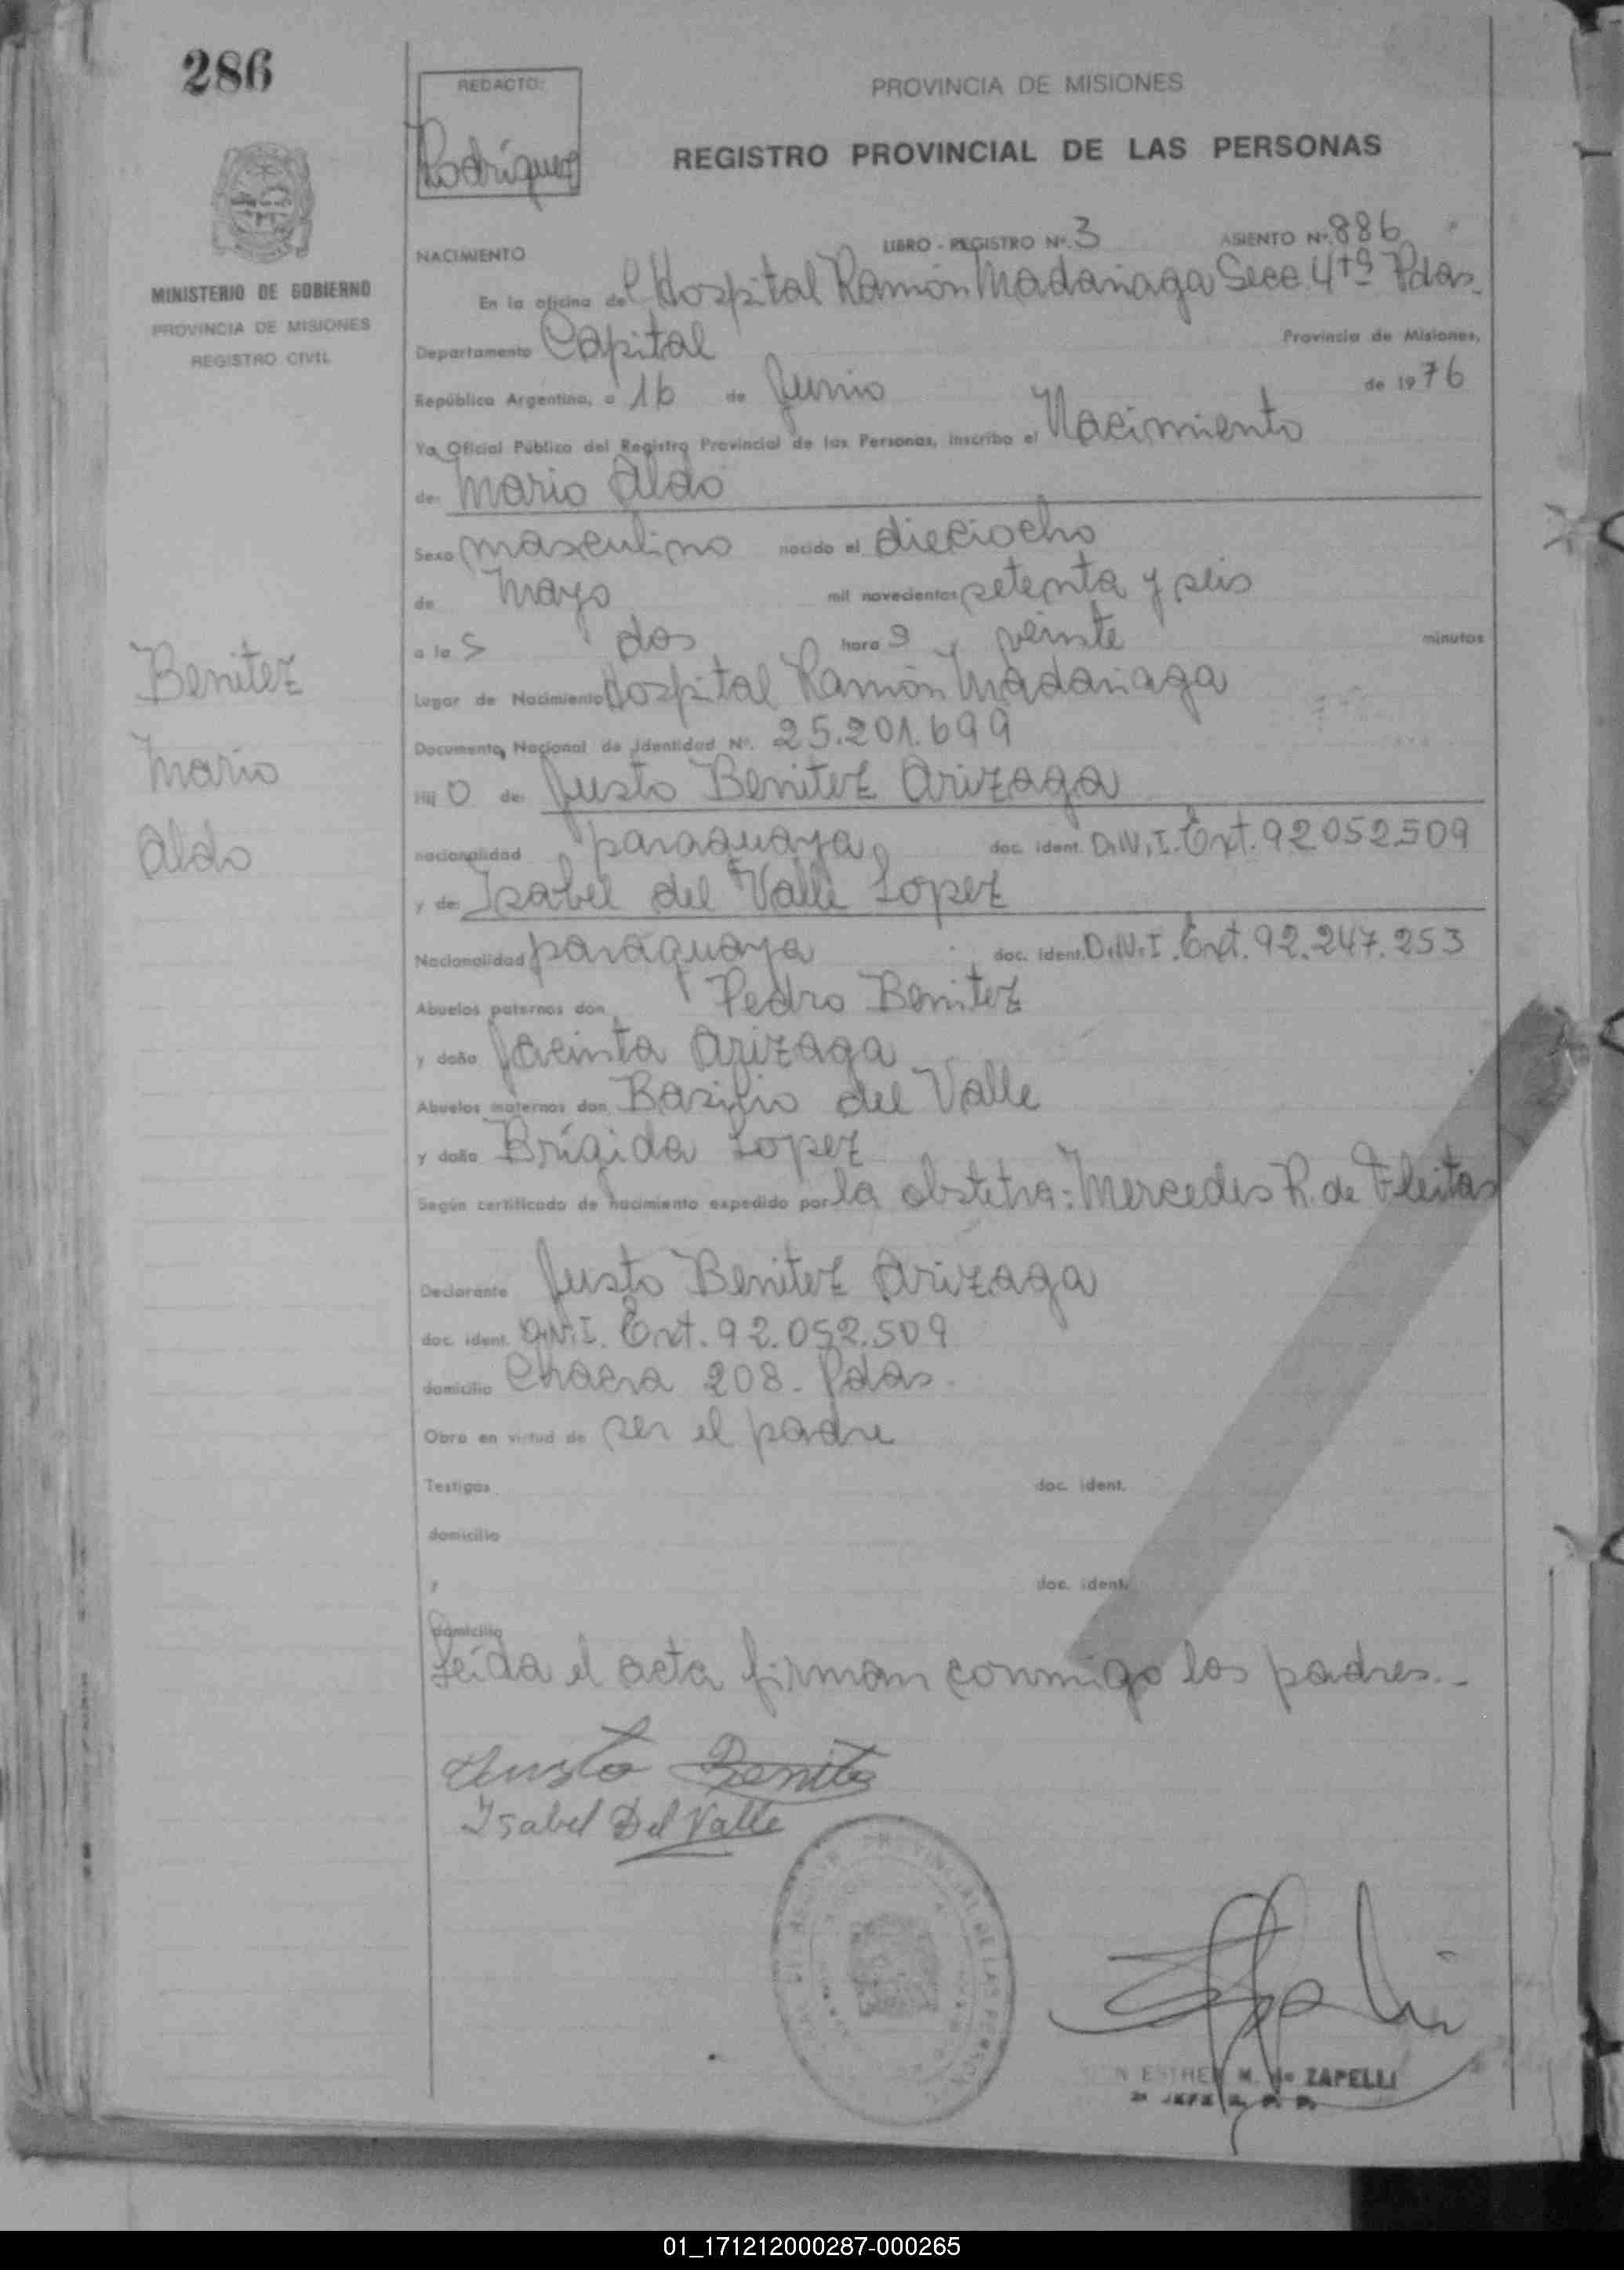 286
REDACTO:
Rodríguez
PROVINCIA DE MISIONES
REGISTRO PROVINCIAL DE LAS PERSONAS
MINISTERIO DE GOBIERNO
PROVINCIA DE MISIONES
REGISTRO CIVIL
NACIMIENTO LIBRO - REGISTRO Nº. 3 ASIENTO Nº. 886
En la oficina del Hospital Ramón Madariaga Secc. 4ta Pdas.
Departamento Capital Provincia de Misiones,
República Argentina, a 16 de Junio de 1976
Yo, Oficial Público del Registro Provincial de las Personas, inscribo el Nacimiento
de: Mario Aldo
Sexo masculino nacido el dieciocho
de Mayo mil novecientos setenta y seis
a la s dos hora s y veinte minutos
Lugar de Nacimiento Hospital Ramón Madariaga
Documento Nacional de Identidad Nº. 25.201.699
Hij o de: Justo Benitez Arizaga
nacionalidad paraguaya doc. ident. D.N.I. Ext. 92.052.509
y de: Isabel del Valle Lopez
Nacionalidad paraguaya doc. ident. D.N.I. Ext. 92.247.253
Abuelos paternos don Pedro Benitez
y doña Jacinta Arizaga
Abuelos maternos don Basilio del Valle
y doña Brígida Lopez
Según certificado de nacimiento expedido por la obstetra: Mercedes R. de Fleitas
Declarante Justo Benitez Arizaga
doc. ident. D.N.I. Ext. 92.052.509
domicilio Chacra 208. Pdas.
Obra en virtud de ser el padre
Testigos doc. ident.
domicilio
y doc. ident.
domicilio
Leída el acta firman conmigo los padres.-
Benitez
Mario
Aldo
Justo Benitez
Isabel Del Valle
ESTHER M. de ZAPELLI
2º JEFE R. P. P.
01_171212000287-000265